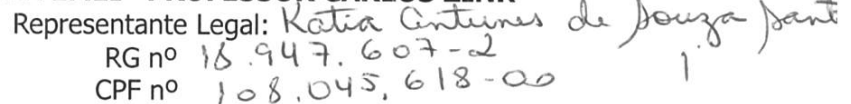 Representante Legal: Katia Antunes de Souza Sant
RG nº 18.947.607-2
CPF nº 108.045.618-00